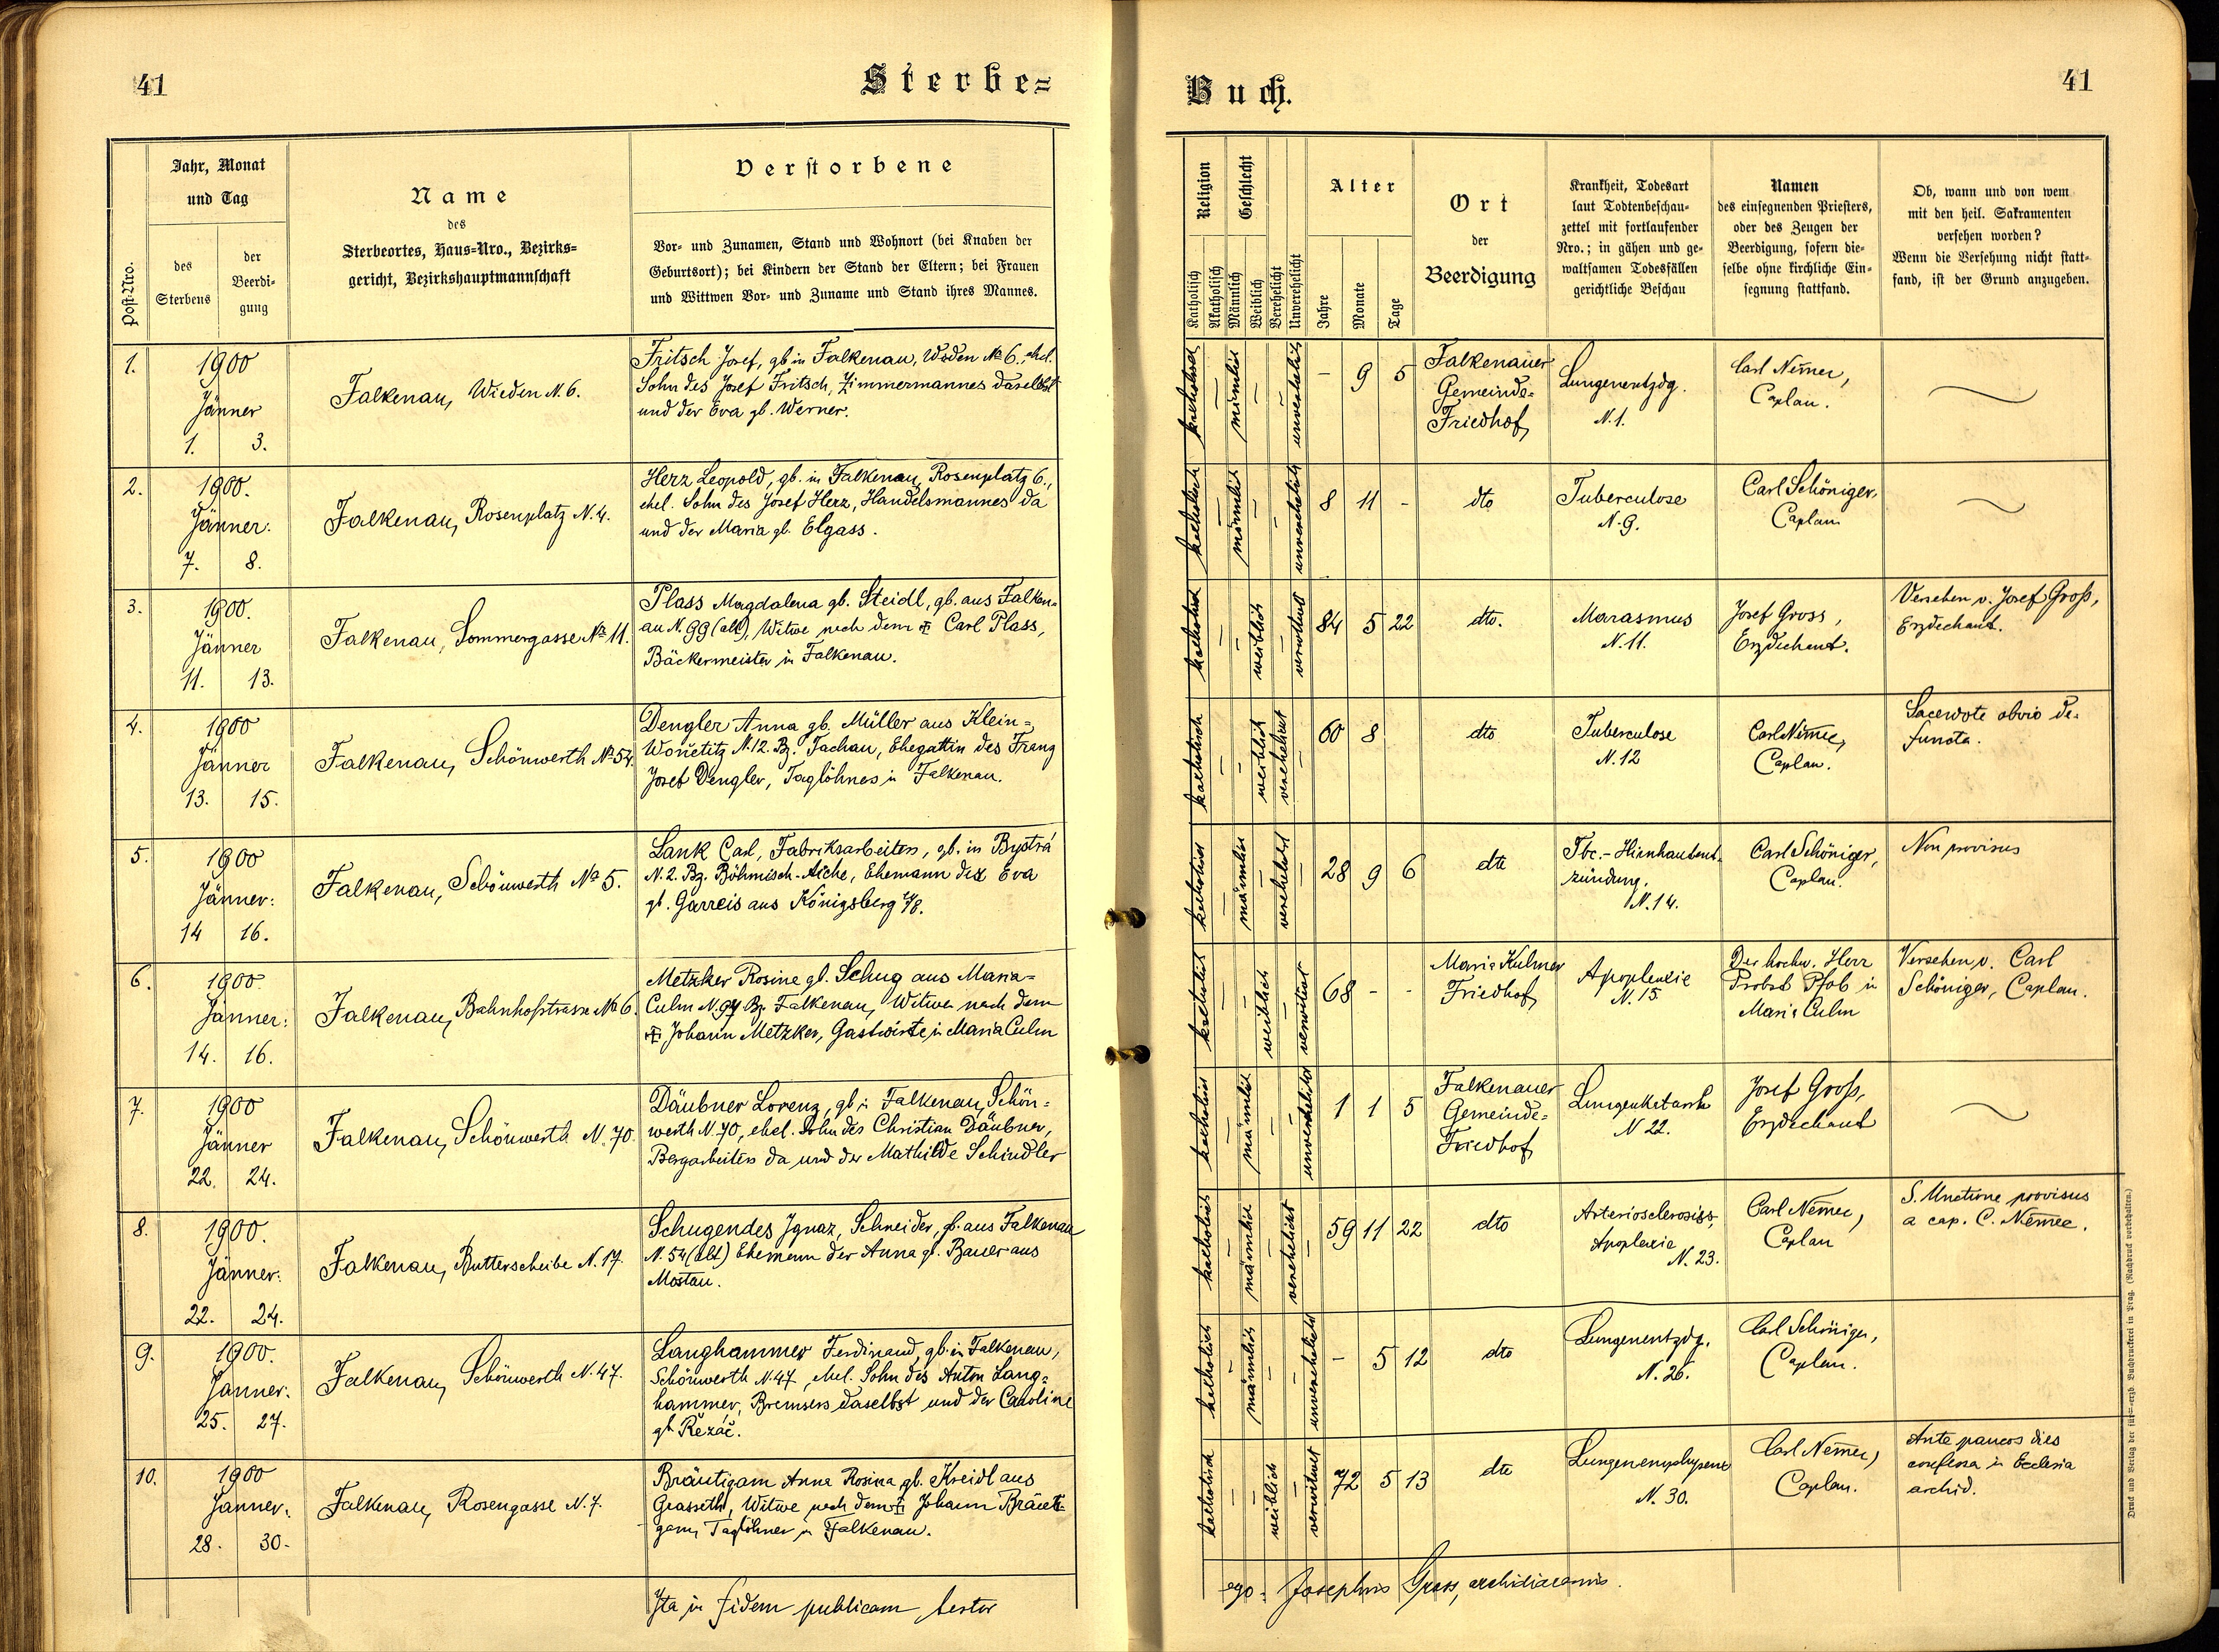 41
Sterbe=
Buch.
41
Post-Nro.
Jahr, Monat
und Tag
des
Sterbens
der
Beerdi-
gung
Name
des
Sterbeortes, Haus-Nro., Bezirks-
gericht, Bezirkshauptmannschaft
Verstorbene
Vor- und Zunamen, Stand und Wohnort (bei Knaben der
Geburtsort); bei Kindern der Stand der Eltern; bei Frauen
und Wittwen Vor- und Zuname und Stand ihres Mannes.
Religion
Katholisch
Akatholisch
Geschlecht
Männlich
Weiblich
Verehelicht
Unverehelicht
Alter
Jahre
Monate
Tage
Ort
der
Beerdigung
Krankheit, Todesart
laut Todtenbeschau-
zettel mit fortlaufender
Nro.; in gähen und ge-
waltsamen Todesfällen
gerichtliche Beschau
Namen
des einsegnenden Priesters,
oder des Zeugen der
Beerdigung, sofern die-
selbe ohne kirchliche Ein-
segnung stattfand.
Ob, wann und von wem
mit den heil. Sakramenten
versehen worden?
Wenn die Versehung nicht statt-
fand, ist der Grund anzugeben.
1.
1900
Jänner
1. 3.
Falkenau, Wieden N. 6.
Fritsch Josef, gb in Falkenau, Wieden No 6. ehel.
Sohn des Josef Fritsch, Zimmermannes daselbst
und der Eva gb. Werner.
katholisch – männlich – – unverehelicht
– 9 5
Falkenauer
Gemeinde-
Friedhof
Lungenentzdg.
N. 1.
Carl Němec,
Caplan.
2.
1900.
Jänner.
7. 8.
Falkenau, Rosenplatz N. 4.
Herz Leopold, gb. in Falkenau, Rosenplatz 6.,
ehel. Sohn des Josef Herz, Handelsmannes da
und der Maria gb. Elgass.
katholisch – männlich – – unverehelicht
8 11 -
dto
Tuberculose
N. 9.
Carl Schöniger,
Caplan
3.
1900.
Jänner
11. 13.
Falkenau, Sommergasse No 11.
Plass Magdalena gb. Steidl, gb. aus Falken=
au N. 99 (alt), Witwe nach dem Carl Plass,
Bäckermeister in Falkenau.
katholisch – – weiblich – verwitwet
84 5 22
dto.
Marasmus
N. 11.
Josef Gross,
Erzdechant.
Versehen v. Josef Groß,
Erzdechant.
4.
1900
Jänner
13. 15.
Falkenau, Schönwerth No 54.
Dengler Anna gb. Müller aus Klein=
Wonetitz N. 12 Bz. Tachau, Ehegattin des Franz
Josef Dengler, Taglöhners in Falkenau.
katholisch – – weiblich verehelicht –
60 8
dto
Tuberculose
N. 12
Carl Němec,
Caplan.
Sacerdote obvio de-
functa.
5.
1900
Jänner:
14 16.
Falkenau, Schönwerth No 5.
Lank Carl, Fabriksarbeiter, gb. in Bystrá
N. 2. Bz. Böhmisch-Aiche, Ehemann der Eva
gb. Garreis aus Königsberg a/E.
katholisch – männlich – verehelicht –
28 9 6
dto
Tbc.-Hirnhautent-
zündung.
N. 14.
Carl Schöniger,
Caplan.
Non provisus
6.
1900
Jänner:
14. 16.
Falkenau, Bahnhofstrasse No 6.
Metzker Rosine gb. Schug aus Maria-
Culm N. 94 Bz. Falkenau, Witwe nach dem
Johann Metzker, Gastwirte in Maria Culm
katholisch – – weiblich – verwitwet
68 - -
Maria Kulmer
Friedhof
Apoplexie
N. 15.
Der hochw. Herr
Probst Pfob in
Maria Culm
Versehen v. Carl
Schöniger, Caplan.
7.
1900
Jänner
22. 24.
Falkenau, Schönwerth N. 70.
Däubner Lorenz, gb in Falkenau, Schön=
werth N. 70, ehel. Sohn des Christian Däubner,
Bergarbeiters da und der Mathilde Schindler
katholisch – männlich – – unverehelicht
1 1 5
Falkenauer
Gemeinde-
Friedhof
Lungenkatarrh
N 22.
Josef Groß,
Erzdechant
8.
1900.
Jänner:
22. 24.
Falkenau, Butterscheibe N. 17.
Schugendes Ignaz, Schneider, gb. aus Falkenau
N. 54 (alt) Ehemann der Anna gb. Bauer aus
Mostau.
katholisch – männlich – verehelicht –
59 11 22
dto
Arteriosclerosiss,
Apoplexie
N. 23.
Carl Němec,
Caplan
S. Unctione provisus
a cap. C. Němec.
9.
1900.
Jänner.
25. 27.
Falkenau, Schönwerth N. 47.
Langhammer Ferdinand, gb. in Falkenau,
Schönwerth N. 47, ehel. Sohn des Anton Lang=
hammer, Bremsers daselbst und der Caroline
gb Řezáč.
katholisch – männlich – – unverehelicht
– 5 12
dto
Lungenentzdg.
N. 26.
Carl Schöniger,
Caplan.
10.
1900
Jänner.
28. 30.
Falkenau, Rosengasse N. 7.
Bräutigam Anna Rosina gb. Kreidl aus
Grasseth, Witwe nach dem Johann Bräuti-
gam, Taglöhner in Falkenau.
katholisch – – weiblich – verwitwet
72 5 13
dto
Lungenemphysem
N. 30.
Carl Němec,
Caplan.
Ante paucos dies
confessa in Ecclesia
archid.
Ita in fidem publicam testor
ego: Josephus Gross, archidiaconus.
Druck und Verlag der fürst-erzb. Buchdruckerei in Prag. (Nachdruck vorbehalten.)